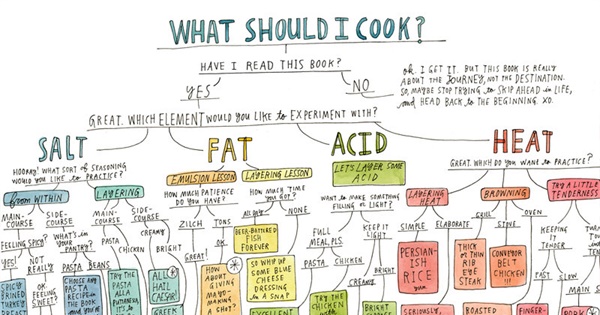 WHAT SHOULD I COOK?
HAVE I READ THIS BOOK?
YES
NO
OK. I GET IT. BUT THIS BOOK IS REALLY
ABOUT THE JOURNEY, NOT THE DESTINATION.
SO, MAYBE STOP TRYING to SKIP AHEAD in LIFE,
and HEAD BACK to THE BEGINNING. XO.
GREAT. WHICH ELEMENT WOULD YOU LIKE to EXPERIMENT WITH?
SALT
FAT
ACID
HEAT
HOORAY! WHAT SORT of SEASONING
WOULD YOU LIKE to PRACTICE?
from WITHIN
LAYERING
MAIN-
COURSE
SIDE-
COURSE
MAIN-
COURSE
SIDE-
COURSE
FEELING SPICY?
YES!
NOT
REALLY
OK,
FEELING
SWEET?
SPICY
BRINED
TURKEY
BREAST
WHAT'S in
YOUR
PANTRY?
PASTA
BEANS
CHOOSE ANY
PASTA
RECIPE in
THE BOOK
PASTA
CHICKEN
TRY THE
PASTA
ALLA
PUTTANESCA,
IT'S
CREAMY
BRIGHT
ALL
HAIL
CAESAR!
GREEK
EMULSION LESSON
HOW MUCH PATIENCE
DO YOU HAVE?
ZILCH
TONS
GREAT!
OK.
HOW
ABOUT
GIVING
MAYO-
MAKING
A SHOT?
LAYERING LESSON
HOW MUCH TIME
YOU GOT?
ALL DAY
NONE
BEER-BATTERED
FISH
FOREVER
SO WHIP UP
SOME BLUE
CHEESE
DRESSING
in A SNAP
EXCELLENT
LET'S LAYER SOME
ACID
WANT to MAKE SOMETHING
FILLING or LIGHT?
FULL
MEAL, PLS.
KEEP IT
LIGHT
PASTA
CHICKEN
CREAMY
BRIGHT
TRY THE
CHICKEN
WITH
BRIGHT
GREAT. WHICH DO YOU WANT to PRACTICE?
LAYERING
HEAT
SIMPLE
ELABORATE
PERSIAN-
ISH
RICE
SERIOUSLY,
BROWNING
GRILL
STOVE
OVEN
THICK or
THIN RIB
EYE
STEAK
CONVEYOR
BELT
CHICKEN!!!
ROASTED
TRY A LITTLE
TENDERNESS
KEEPING
IT
TENDER
FAST
SLOW
FINGER-
PORK